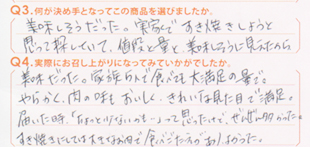 Q3.何が決め手となってこの商品を選びましたか。
美味しそうだった。実家ですき焼きしようと
思って探していて、値段と量と、美味しそうに見えたから
Q4.実際にお召し上がりになってみていかがでしたか。
美味だった。家族5人で食べても大満足の量で。
やらかく、肉の味もおいしく、きれいな見た目で満足。
届いた時、「ちょっと少ないかも…」って思ったけど、ぜんぜん多かった。
すき焼きにしては大きなお肉で食べごたえがあり、よかった。